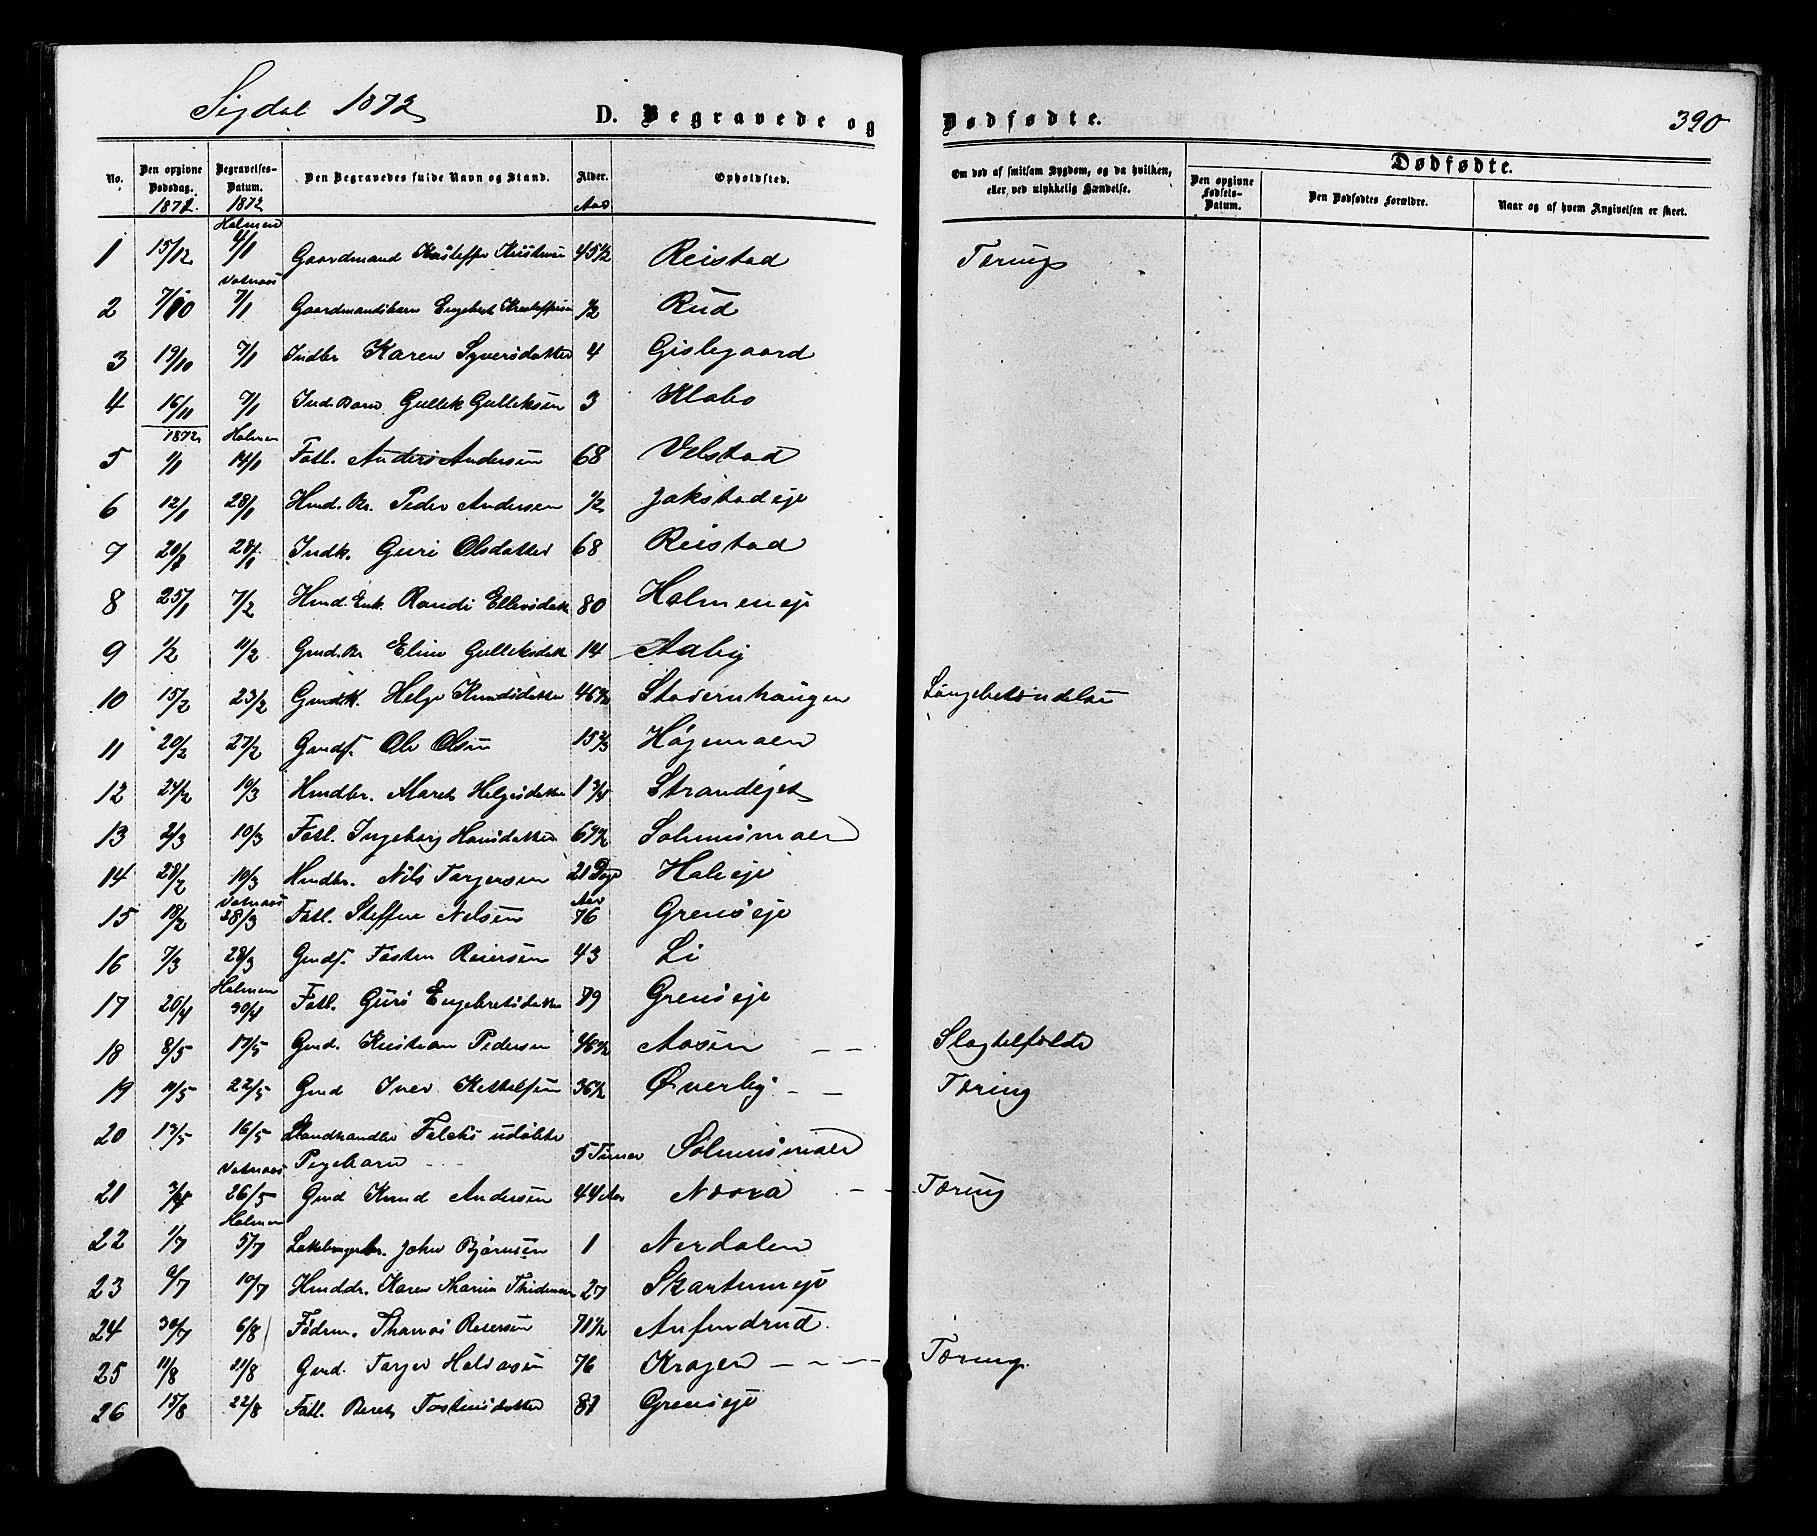 Sigdal 1872
D. Begravede og Dødfødte. 390
No. Den opgivne Dødsdag. 1871. Begravelses-Datum. 1872 Den Begravedes fulde Navn og Stand. Alder. Aar Opholdsted. Om død af smitsom Sygdom, og da hvilken, eller ved ulykkelig Hændelse.
Dødfødte.
Den opgivne Fødsels-Datum. Den Dødfødtes Forældre. Naar og af hvem Angivelsen er skeet.
Holmen
1 15/12 4/1 Gaardmand Kristensen 45 1/2 Reistad Tæring
Vatnaas
2 7/10 7/1 Gaardmandsbarn Engebret Kristoffersen 1/2 Rud
3 19/10 7/1 Indbr Karen Syversdatter 4 Gislegaard
4 16/11 7/1 Ind. Barn Gullik Gulliksen 3 Klabo
1872 Holmen
5 1/1 14/1 Fatl. Anders Andersen 68 Velstad
6 12/1 28/1 Hmd. Br. Peder Andersen 1/2 Jokstadeje
7 20/1 28/1 Indk. Guri Olsdatter 68 Reistad
8 25/1 7/2 Hmd. Enk. Randi Ellevsdatt 80 Holmeneje
9 1/2 11/2 Gmd. Br Eline Gulliksdatt 14 Aaby
10 15/2 23/2 Gmdk. Helge Knudsdatter 46 1/2 Stavernhaugen Lungebetændelse
11 20/2 27/2 Gmdf. Ole Olsen 15 2/3 Høgemoen
12 24/2 10/3 Hmdbr. Maret Helgesdatter 1 3/4 Strandejet
13 2/3 10/3 Fatl. Ingeborg Hansdatter 69 1/2 Solumsmoen
14 28/2 10/3 Hmdbr. Nils Torgersen 21 Dage Holseje
Vatnaas Aar
15 18/2 28/3 Fatl. Steffen Nelsen 76 Grenseje
16 7/3 28/3 Gmdf. Tosten Reiersen 43 Li
Holmen
17 20/4 30/4 Fatl. Guri Engebretsdatter 79 Grenseje
18 8/5 17/5 Gmd. Kristian Pedersen 46 1/2 Aasen Slagtelfælde
19 11/5 22/5 Gmd Iver Kittelsen 36 1/2 Øverby Tæring
20 13/5 16/5 Landhandler Falcks udøbte
Pigebarn 5 Timer Solumsmoen
Vatnaas
21 3/4 26/5 Gmd Knud Andersen 44 Aar Næora Tæring
Holmen
22 1/7 5/7 John Bjørnsen 1 Nerdalen
23 6/7 10/7 Hmddr. Karen Marie 27 Skartumeje
24 30/7 6/8 Fødrm. Thomas Reiersen 71 1/2 Anfindrud
25 11/8 21/8 Gmd. Torger Halvorsen 76 Kragen Tæring
26 15/8 22/8 Fatl. Beret Tostensdatter 81 Grenseje